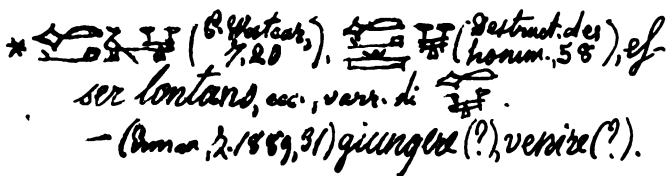 * (P. Westcar, 7,20), (Destruct. des homm., 58), es-
ser lontano, ecc., varr. di .
— (Erman, Z. 1889, 31) giungere (?), venire (?).